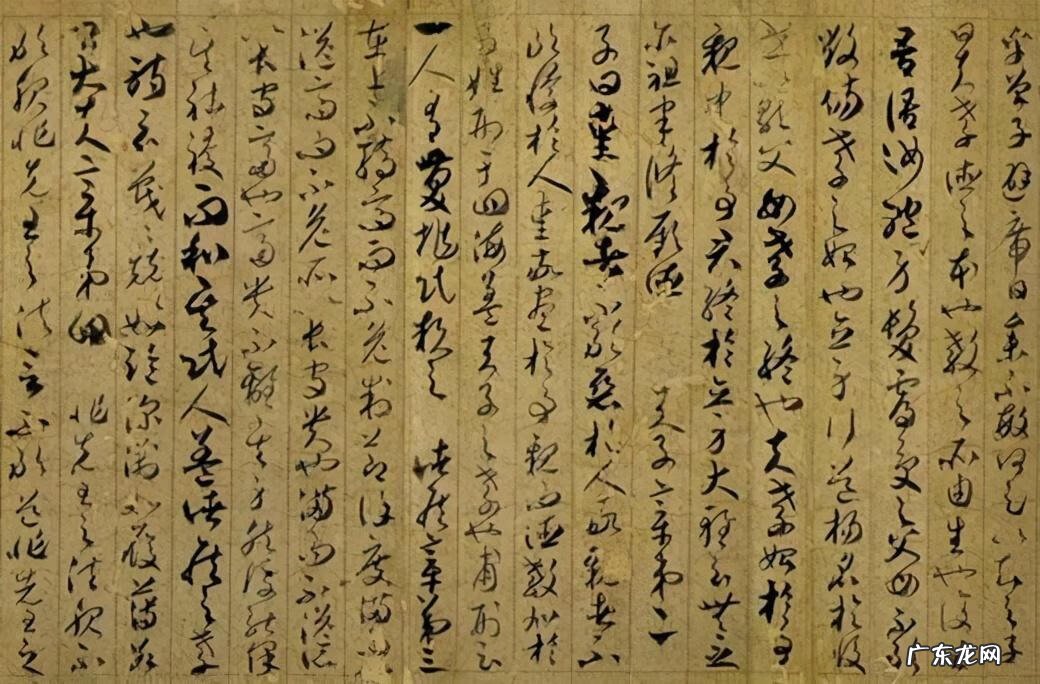 乎曾子避席曰参不敏何足以知之子
曰夫孝德之本也教之所由生也復坐
吾語汝體身髮膚受之父母不敢
毀傷孝之始也立身行道揚名於後
世以顯父母孝之終也夫孝始於事
親中於事君終於立身大雅云無念
爾祖聿脩厥德 天子章第二
子曰愛親者不敢惡於人敬親者不
敢慢於人愛敬盡於事親而德教加於
百姓刑于四海蓋天子之孝也甫刑云
一人有慶兆民賴之 諸侯章第三
在上不驕高而不危制節謹度滿而不
溢高而不危所以長守貴也滿而不溢所
以長守富也富貴不離其身然後能保
其社稷而和其民人蓋諸侯之孝
也詩云戰戰兢兢如臨深淵如履薄冰
卿大夫章第四 非先王之法服不
敢服非先王之法言不敢道非先王之
广东龙网